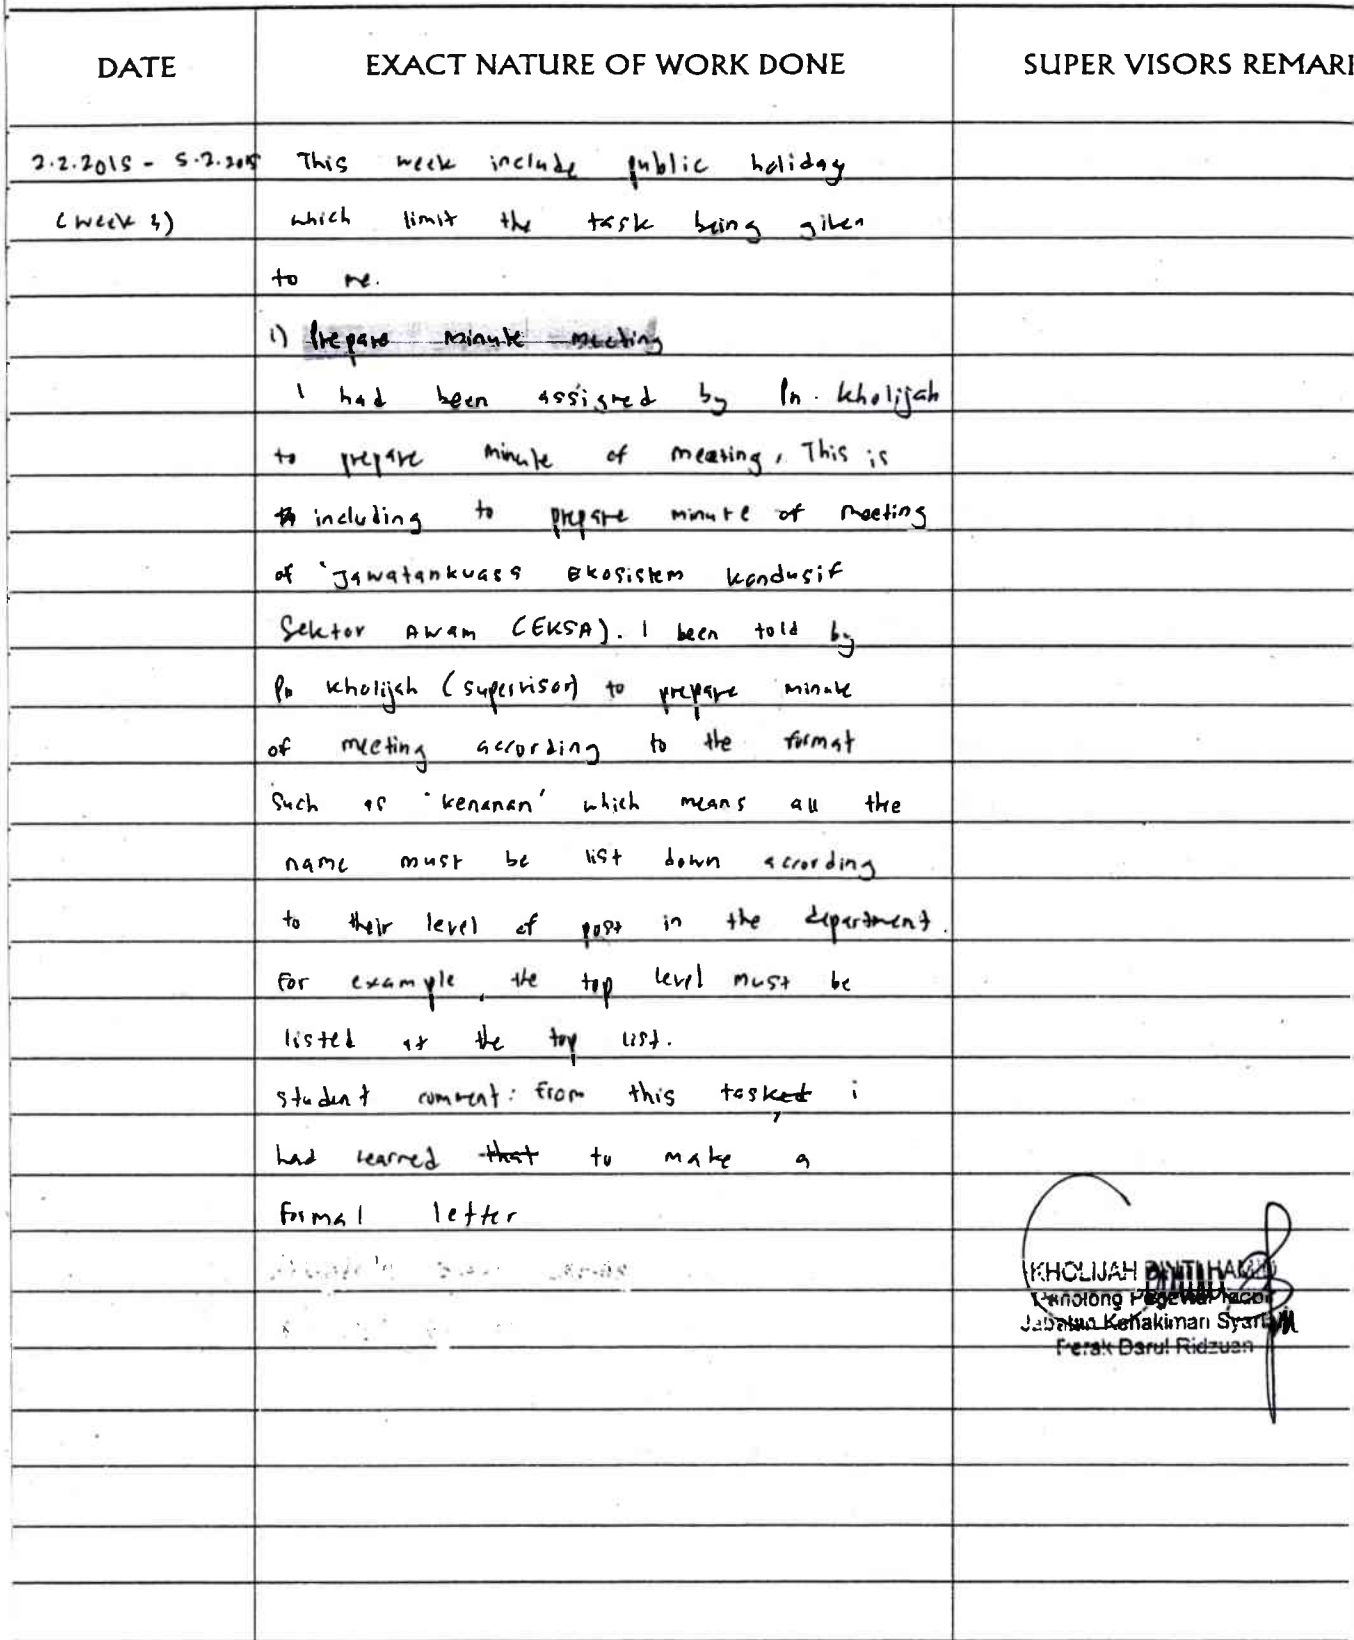 DATE EXACT NATURE OF WORK DONE SUPER VISORS REMAR
2.2.2015 - 5.2.2015 This week include public holiday
(week 3) which limit the task being given
to me.
1) Prepare minute meeting
I had been assigned by Pn. Kholijah
to prepare minute of meeting, This is
including to prepare minute of meeting
of 'Jawatankuasa Ekosistem Kondusif
Sektor Awam (EKSA). I been told by
Pn Kholijah (supervisor) to prepare minute
of meeting according to the format
such as 'kenanan' which means all the
name must be list down according
to their level of post in the department.
For example, the top level must be
listed at the top list.
student comment: From this task, i
had learned to make a
formal letter
KHOLIJAH BINTI HAMID
Penolong Pegawai
Jabatan Kehakiman Syariah
Perak Darul Ridzuan